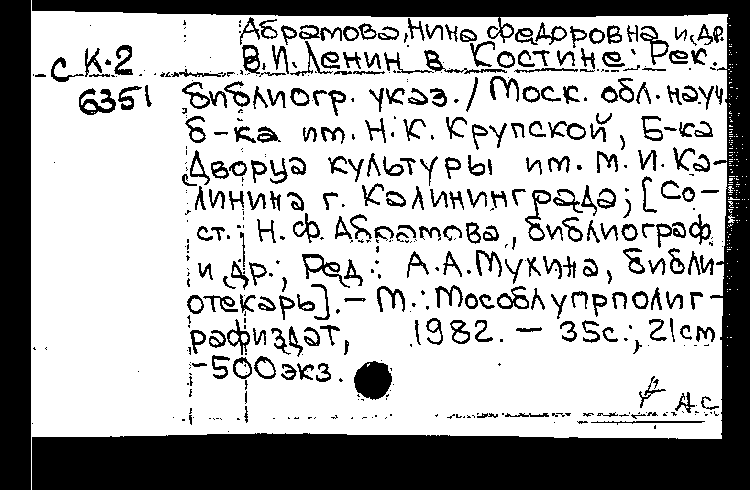 Абрамова, Нина Федоровна и др.
с К-2 В.И. Ленин в Костине: Рек.
6351 библиогр. указ. / Моск. обл. науч.
б-ка им. Н.К. Крупской, Б-ка
Дворца культуры им. М.И. Ка-
линина г. Калининграда; [Со-
ст.: Н.Ф. Абрамова, библиограф
и др.; Ред.: А.А. Мухина, библи-
отекарь]. – М.: Мособлупрполиг-
рафиздат, 1982. – 35с.; 21см.
-500экз.
А.С